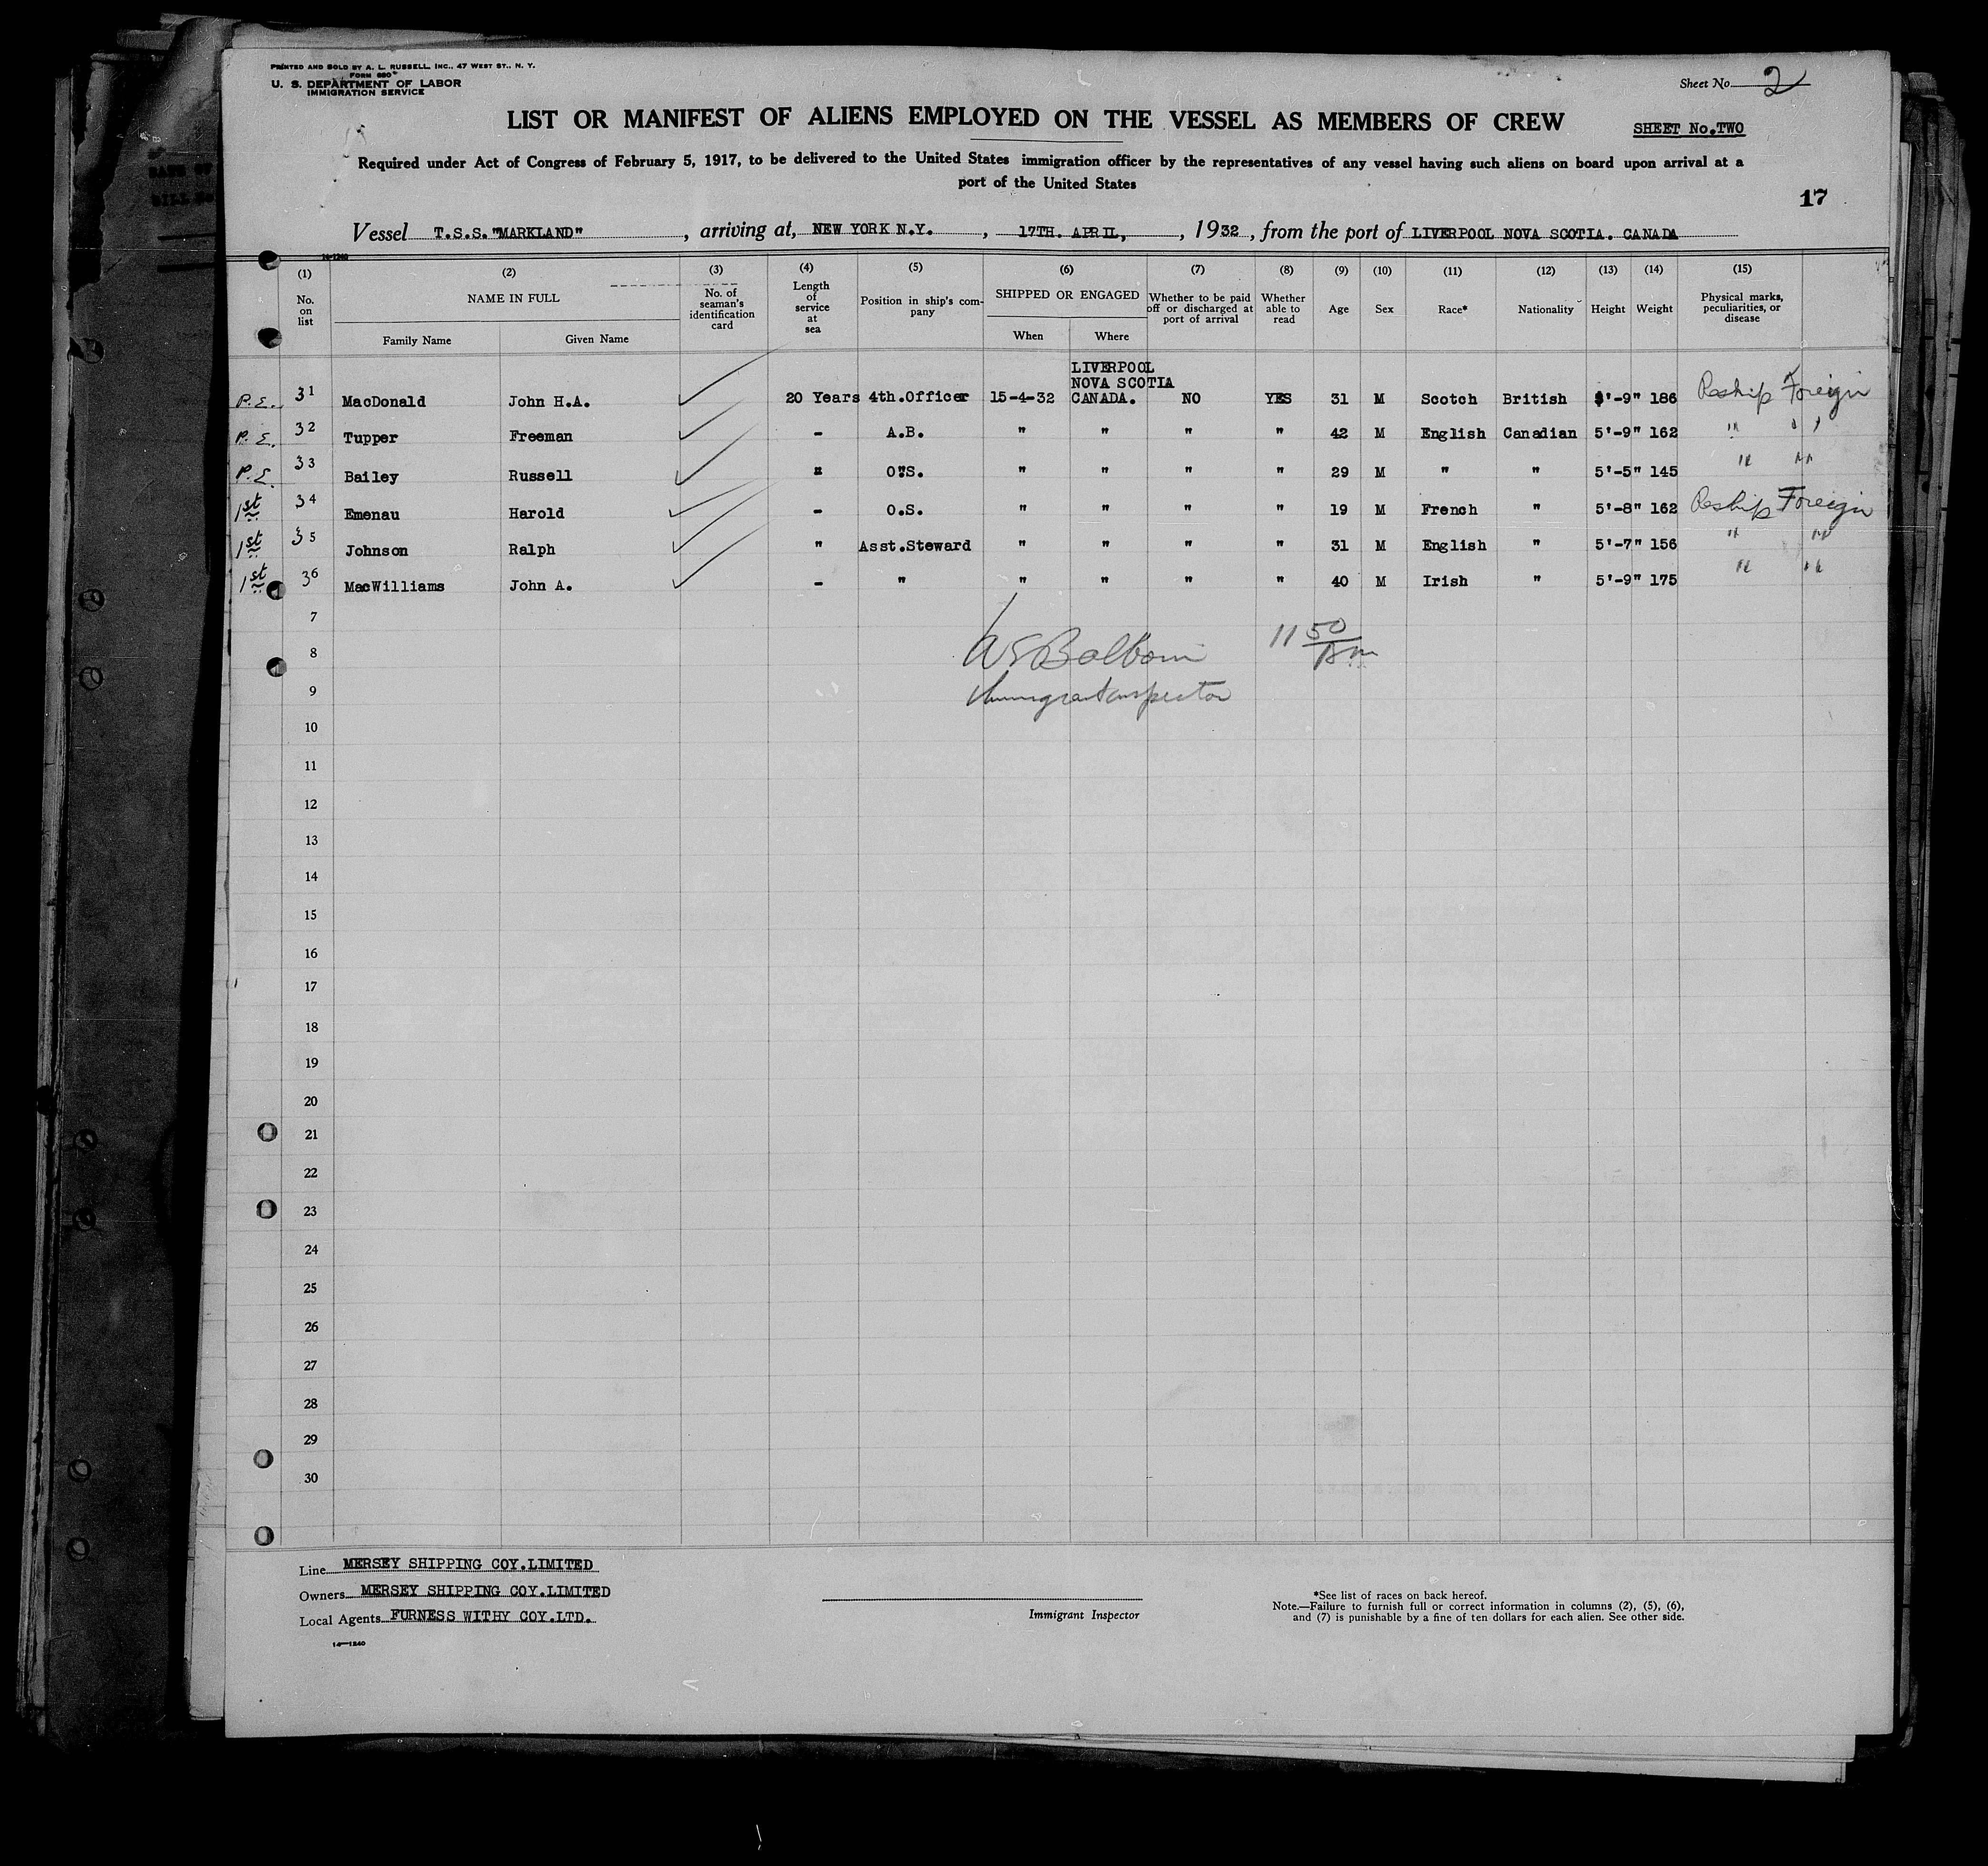 PRINTED AND SOLD BY A. L. RUSSELL, INC., 47 WEST ST., N. Y.
FORM 680
U. S. DEPARTMENT OF LABOR
IMMIGRATION SERVICE
Sheet No. 2
LIST OR MANIFEST OF ALIENS EMPLOYED ON THE VESSEL AS MEMBERS OF CREW
SHEET No.TWO
Required under Act of Congress of February 5, 1917, to be delivered to the United States immigration officer by the representatives of any vessel having such aliens on board upon arrival at a
port of the United States
17
Vessel T.S.S."MARKLAND", arriving at, NEW YORK N.Y., 17TH. APRIL, , 1932, from the port of LIVERPOOL NOVA SCOTIA. CANADA
14-1240
(1) (2) (3) (4) (5) (6) (7) (8) (9) (10) (11) (12) (13) (14) (15)
No. on list NAME IN FULL No. of seaman's identification card Length of service at sea Position in ship's company SHIPPED OR ENGAGED Whether to be paid off or discharged at port of arrival Whether able to read Age Sex Race* Nationality Height Weight Physical marks, peculiarities, or disease
Family Name Given Name When Where
P.E. 31 MacDonald John H.A. 20 Years 4th.Officer 15-4-32 LIVERPOOL NOVA SCOTIA CANADA. NO YES 31 M Scotch British 5'-9" 186 Reship Foreign
P.E. 32 Tupper Freeman - A.B. " " " " 42 M English Canadian 5'-9" 162 " "
P.E. 33 Bailey Russell " O.S. " " " " 29 M " " 5'-5" 145 " "
1st 34 Emenau Harold - O.S. " " " " 19 M French " 5'-8" 162 Reship Foreign
1st 35 Johnson Ralph " Asst.Steward " " " " 31 M English " 5'-7" 156 " "
1st 36 MacWilliams John A. - " " " " " 40 M Irish " 5'-9" 175 " "
7
8 11 50
9 Immigrant Inspector
10
11
12
13
14
15
16
17
18
19
20
21
22
23
24
25
26
27
28
29
30
Line MERSEY SHIPPING COY.LIMITED
Owners MERSEY SHIPPING COY.LIMITED
Local Agents FURNESS WITHY COY.LTD.
14—1240
Immigrant Inspector
*See list of races on back hereof.
Note.—Failure to furnish full or correct information in columns (2), (5), (6),
and (7) is punishable by a fine of ten dollars for each alien. See other side.